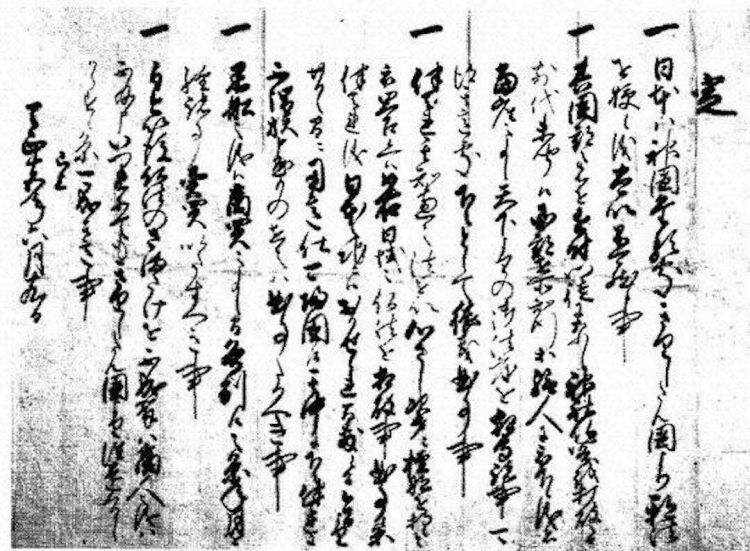 定
一 日本ハ神国たる処きりしたん国より邪法
を授候儀太以不可然候事
一 其国郡之者を近付門徒になし神社仏閣を打破之由
前代未聞候国郡在所知行等給人に被下候儀者
当座之事候天下よりの御法度を相守諸事可
得其意処下々として猥義曲事事
一 伴天連其知恵之法を以心さし次第ニ檀那を持候と
被思召候へハ如右日域之仏法を相破事曲事候条
伴天連儀日本之地ニハおかせられ間敷候間今日より
廿日之間ニ用意仕可帰国候其中に下々伴天連に
不謂族申懸もの在之ハ曲事たるへき事
一 黒船之儀ハ商買之事候間各別に候之条年月を
経諸事売買いたすへき事
一 自今以後仏法のさまたけを不成輩ハ商人之儀は
不及申いつれにてもきりしたん国より往還くる
しからす候条可成其意事
已上
天正十五年六月十九日